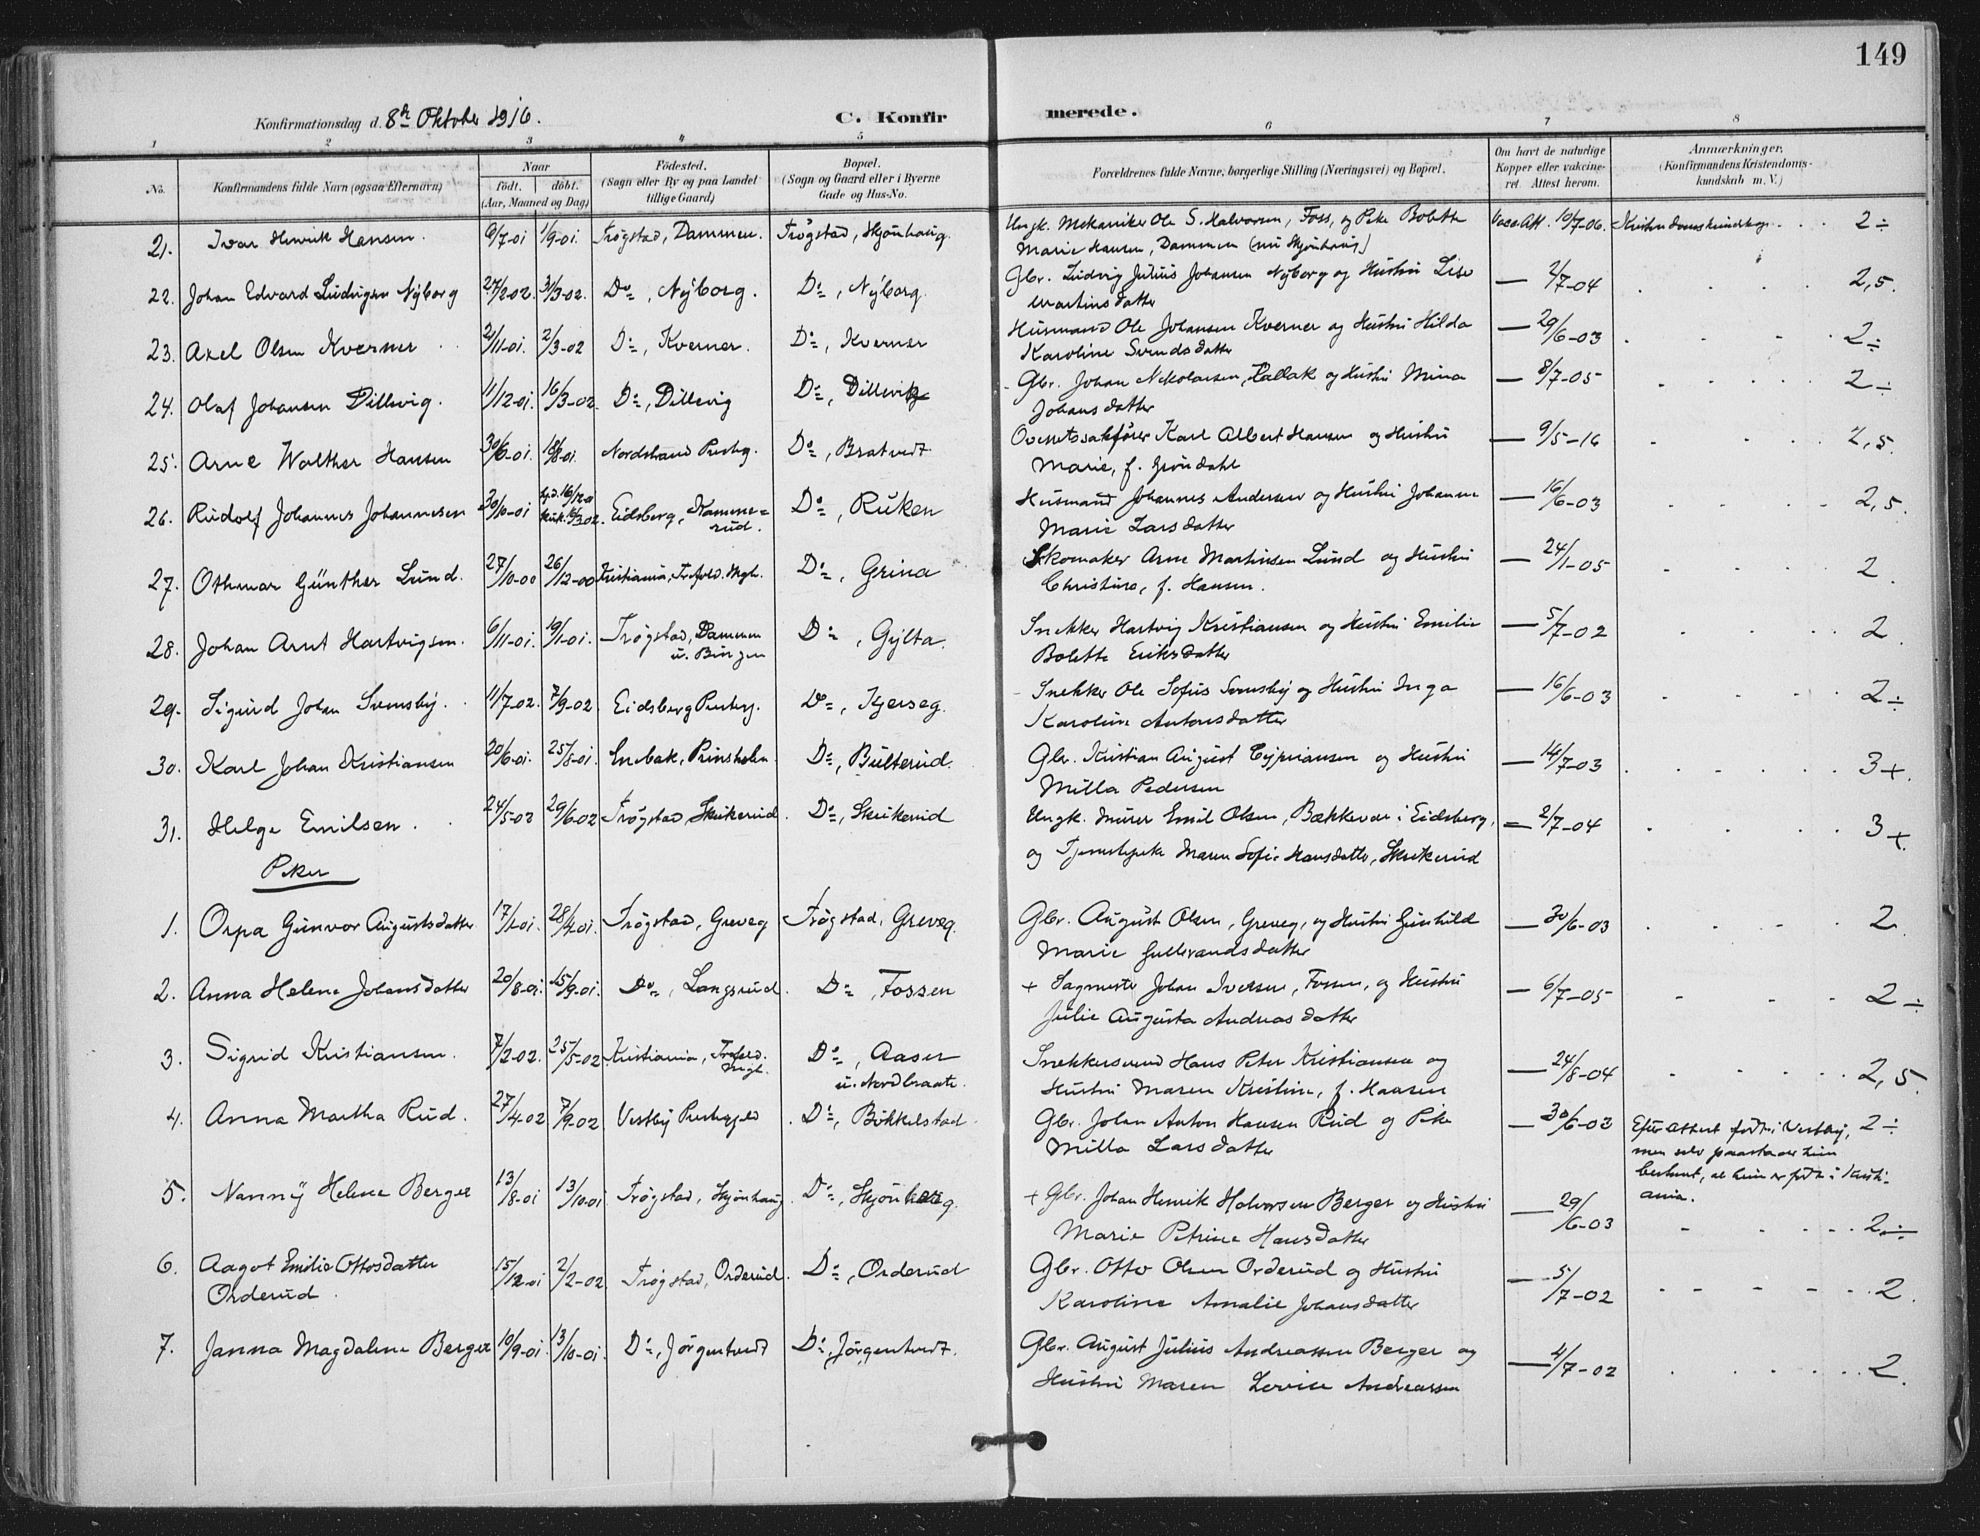 149
Konfirmationsdag d. 8de Oktober 1916.
C. Konfirmerede.
1 2 3 4 5 6 7 8
No.
Konfirmandens fulde Navn (ogsaa Efternavn)
Naar
født. døbt.
(Aar, Maaned og Dag)
Fødested.
(Sogn eller By og paa Landet tillige Gaard)
Bopæl.
(Sogn og Gaard eller i Byerne Gade og Hus-No.
Forældrenes fulde Navne, borgerlige Stilling (Næringsvei) og Bopæl.
Om havt de naturlige Kopper eller vakcineret. Attest herom.
Anmærkninger.
(Konfirmandens Kristendomskundskab m. V.)
21. Ivar Henrik Hansen. 9/7-01 1/9-01. Trøgstad, Dammen. Trøgstad, Skjønhaug. Ungk. Mekaniker Ole S. Halvorsen, Foss, og Pike Bolette Vacc.Att. 10/7-06. Kristendomskundskap 2÷
Marie Hansen, Dammen (nu Skjønhaug)
22. Johan Edvard Ludvigsen Nyborg 27/2-02. 31/3-02. Do, Nyborg. Do, Nyborg. Gbr. Ludvig Julius Johansen Nyborg og Hustru Lise — 2/7-04 2,5.
Martinsdatter
23. Axel Olsen Kverner 2/11-01. 2/3-02 Do, Kverner. Do, Kverner Husmand Ole Johansen Kverner og Hustru Hilda — 29/6-03 2÷
Karoline Svendsdatter
24. Olaf Johansen Dillevig. 11/12-01. 16/3-02. Do, Dillevig Do, Dillevik Gbr. Johan Nikolaisen, Hallak og Hustru Mina — 8/7-05 2÷
Johansdatter
25. Arne Walther Hansen 30/6-01. 18/8-01. Nordstrand Prestegj. Do, Bratvedt Overretssakfører Karl Albert Hansen og Hustru — 9/5-16 2,5.
Marie, f. Grøndahl
26. Rudolf Johannes Johannesen 30/10-01 Eidsberg, Kammerud. Do, Ruken Husmand Johannes Andersen og Hustru Johanne — 16/6-03 2,5.
Marie Larsdatter
27. Othmar Günther Lund. 27/10-00 26/12-00 Kristiania, Trefold. Mgh. Do, Grina Skomaker Arne Martinsen Lund og Hustru — 24/1-05 2.
f. Hansen.
28. Johan Arnt Hartvigsen. 6/11-01. 19/1-01. Trøgstad, Dammen u. Bingen Do, Gylta. Snekker Hartvig Kristiansen og Hustru Emilie — 5/7-02 2
Bolette Eriksdatter
29. Sigurd Johan Svensby. 11/7-02. 7/9-02 Eidsberg Prestegj. Do, Kjerseg. Snekker Ole Sofus Svensby og Hustru Inga — 16/6-03 2÷
Karoline Antonsdatter
30. Karl Johan Kristiansen 20/6-01. 25/8-01. Enebak, Prinsholm. Do, Bulterud. Gbr. Kristian August Cypriansen og Hustru — 14/7-03 3+.
Milla Pedersen
31. Helge Emilsen. 24/5-02 29/6-02 Trøgstad, Skukerud. Do, Skukerud Ungk. Murer Emil Olsen, Bækkevar i Eidsberg, — 2/7-04 3+
og Tjenestepike Maren Sofie Hansdatter, Skukerud
Piker
1. Orpa Gunvor Augustsdatter 17/1-01. 28/4-01. Trøgstad, Greveg Trøgstad, Greveg. Gbr. August Olsen, Greveg, og Hustru Gunhild — 30/6-03 2
Marie Gulbrandsdatter
2. Anna Helene Johansdatter 20/8-01. 15/9-01. Do, Langsrud. Do, Fossen + Sagmester Johan Iversen, Fossen, og Hustru — 6/7-05 2÷
Julie Augusta Andreasdatter
3. Sigrid Kristiansen. 7/2-02. 25/5-02 Kristiania, Trefold. Mgh. Do, Aasen u. Nordbraate. Snekkersvend Hans Peter Kristiansen og — 24/8-04 2,5
Hustru Maren Kristine, f. Haasen
4. Anna Martha Rud. 27/4-02 7/9-02 Vestby Prestegjeld Do, Bøkkelstad. Gbr. Johan Anton Hansen Rud og Pike — 30/6-03 Efter attest født i Vestby, 2÷
Milla Larsdatter men selv paastaar hun
bestemt, at hun er født i Kristiania.
5. Nanny Helene Berger 13/8-01 13/10-01 Trøgstad, Skjønhaug. Do, Skjønhaug. + Gbr. Johan Henrik Halvorsen Berger og Hustru — 29/6-03 2÷
Marie Petrine Hansdatter
6. Aagot Emilie Ottosdatter 15/12-01 2/2-02 Trøgstad, Orderud. Do, Orderud Gbr. Otto Olsen Orderud og Hustru — 5/7-02 2.
Orderud. Karoline Amalie Johansdatter
7. Janna Magdalene Berger 10/9-01 13/10-01. Do, Jørgentvedt Do, Jørgentvedt. Gbr. August Julius Andreassen Berger og — 4/7-02 2.
Hustru Maren Lovise Andreassen